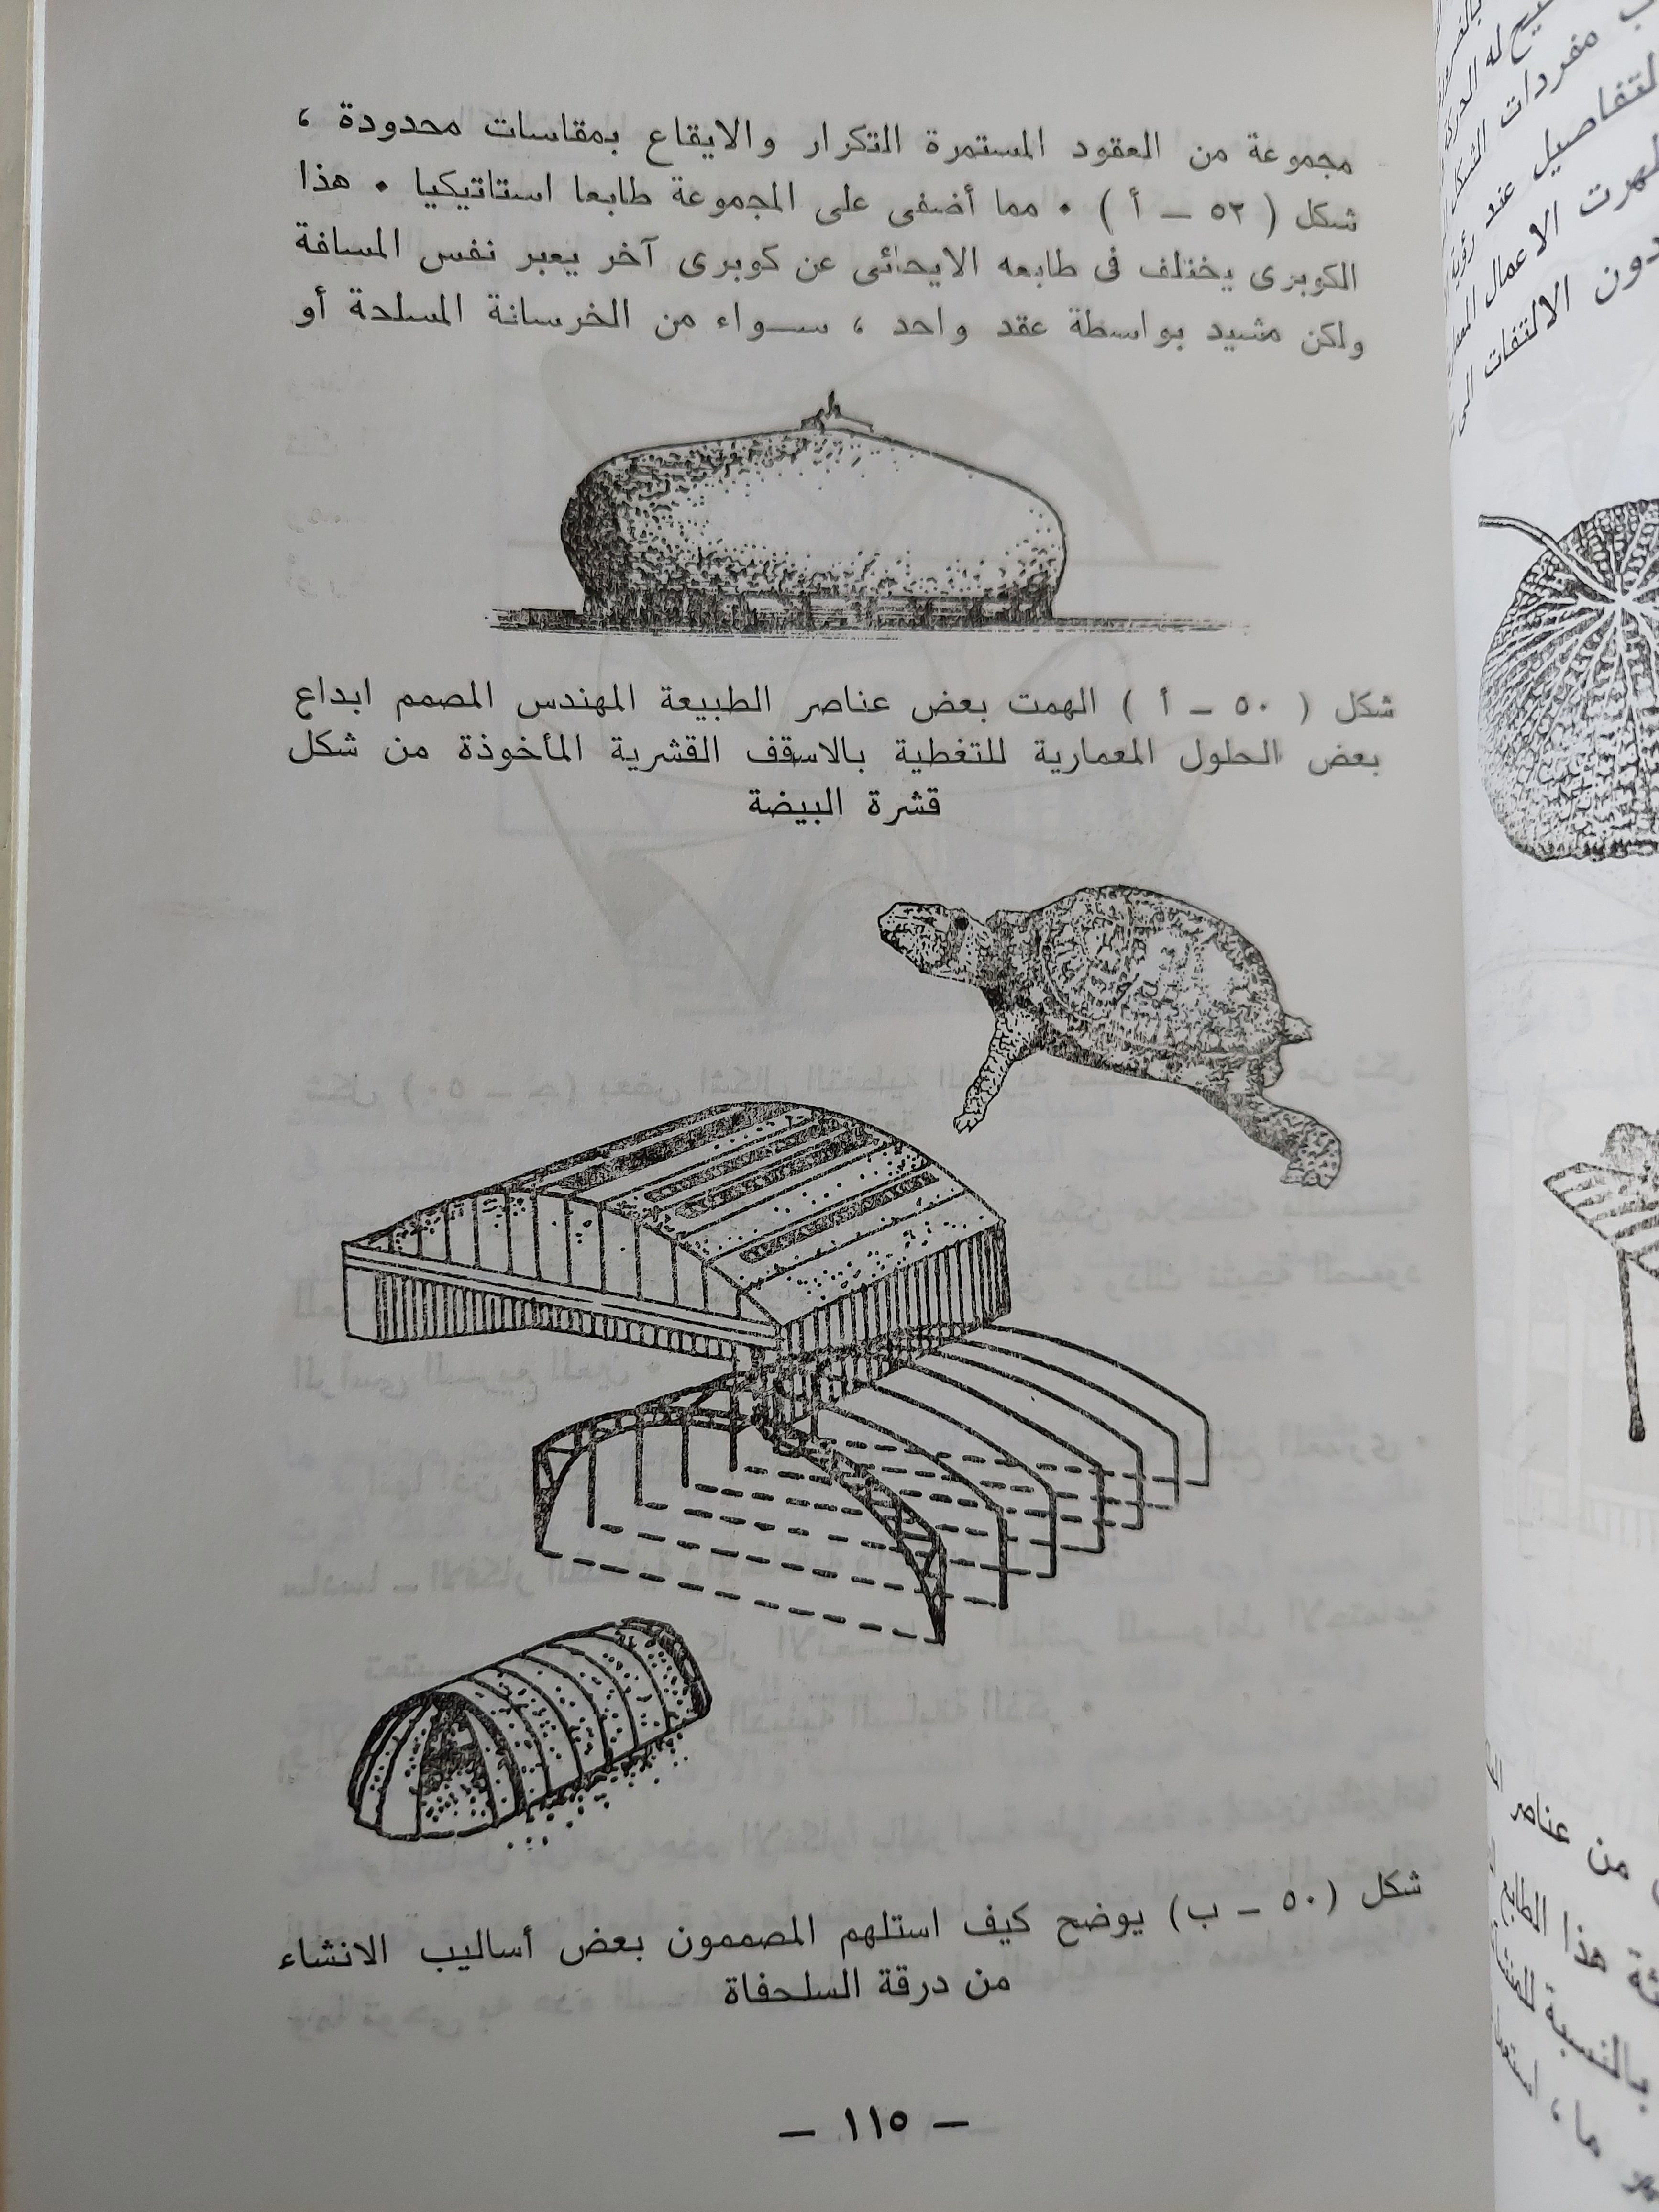 مجموعة من العقود المستمرة التكرار والايقاع بمقاسات محدودة ،
شكل ( ٥٢ — أ ) • مما أضفى على المجموعة طابعا استاتيكيا • هذا
الكوبرى يختلف فى طابعه الايحائى عن كوبرى آخر يعبر نفس المسافة
ولكن مشيد بواسطة عقد واحد ، ســواء من الخرسانة المسلحة أو
شكل ( ٥٠ — أ ) الهمت بعض عناصر الطبيعة المهندس المصمم ابداع
بعض الحلول المعمارية للتغطية بالاسقف القشرية المأخوذة من شكل
قشرة البيضة
شكل (٥٠ — ب) يوضح كيف استلهم المصممون بعض أساليب الانشاء
من درقة السلحفاة
— ١١٥ —
مفردات الشكل
التفاصيل عند رؤية
دون الالتفات الى
من عناصر
هذا الطابع
بالنسبة